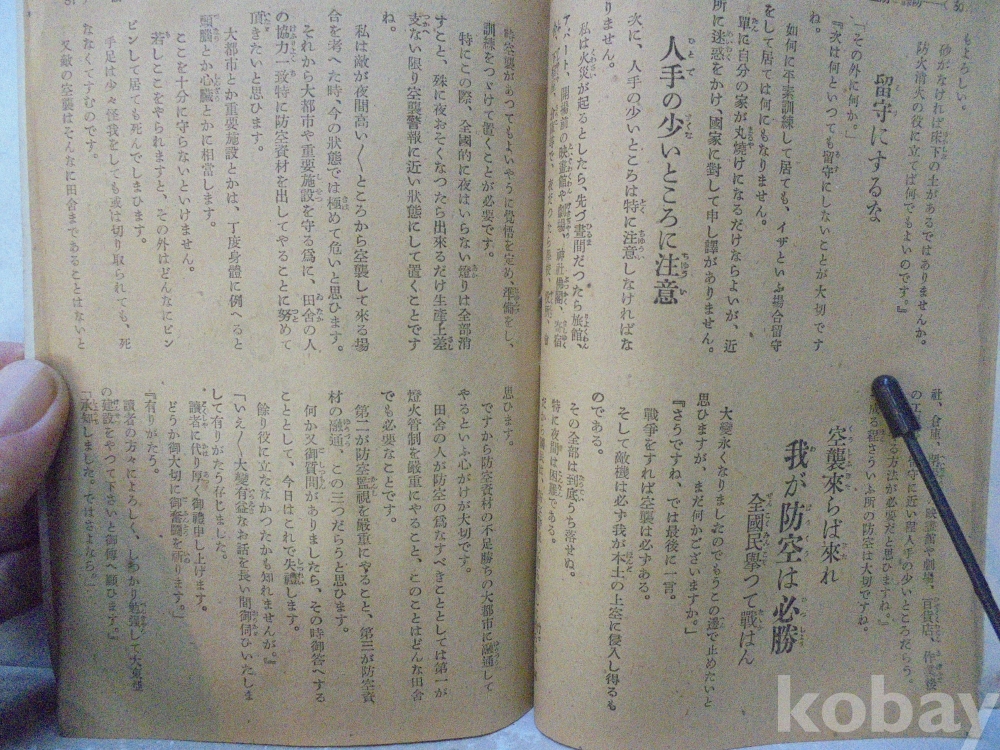 もよろしい。
砂がなければ床下の土があるではありませんか。
防火消火の役に立てば何でもよいのです。』
留守にするな
「その外に何か。」
『次は何といつても留守にしないことが大切です
ね。
如何に平素訓練して居ても、イザといふ場合留守
をして居ては何にもなりません。
單に自分の家が丸燒けになるだけならよいが、近
所に迷惑をかけ國家に對して申し譯がありません。
人手の少いところに注意
次に、人手の少いところは特に注意しなければな
りません。
私は火災が起るとしたら、先づ晝間だつたら旅館、
アパート、開場前の映畫館や劇場、神社佛閣、寄宿
社、倉庫、
映畫館や劇場、百貨店、作業後
の工
守に近い程人手の少いところだらう。
る方法が必要だと思ひますね。』
成る程さういふ所の防空は大切ですね。
空襲來らば來れ
我が防空は必勝
全國民擧つて戰はん
大變永くなりましたのでもうこの邊で止めたいと
思ひますが、まだ何かございますか。」
『さうですね、では最後に一言。
戰爭をすれば空襲は必ずある。
そして敵機は必ず我が本土の上空に侵入し得るも
のである。
その全部は到底うち落せぬ。
特に夜間は困難である。
時空襲があつてもよいやうに覺悟を定め、準備をし、
訓練をつゞけて置くことが必要です。
特にこの際、全國的に夜はいらない燈りは全部消
すこと、殊に夜おそくなつたら出來るだけ生産上差
支ない限り空襲警報に近い狀態にして置くことです
ね。
私は敵が夜間高い〳〵ところから空襲して來る場
合を考へた時、今の狀態では極めて危いと思ひます。
それから大都市や重要施設を守る爲に、田舍の人
の協力一致特に防空資材を出してやることに努めて
頂きたいと思ひます。
大都市とか重要施設とかは、丁度身體に例へると
頭腦とか心臟とかに相當します。
ここを十分に守らないといけません。
若しここをやられますと、その外はどんなにピン
ピンして居ても死んでしまひます。
手足は少々怪我をしても或は切り取られても、死
ななくてすむのです。
又敵の空襲はそんなに田舍まであることはないと
思ひます。
ですから防空資材の不足勝ちの大都市に融通して
やるといふ心がけが大切です。
田舍の人が防空の爲なすべきこととしては第一が
燈火管制を嚴重にやること、このことはどんな田舍
でも必要なことです。
第二が防空監視を嚴重にやること、第三が防空資
材の融通、この三つだらうと思ひます。
何か又御質問がありましたら、その時御答へする
ことゝして、今日はこれで失禮します。
餘り役に立たなかつたかも知れませんが。』
「いえ〳〵大變有益なお話を長い間御伺ひいたしま
して有りがたう存じました。
讀者に代り厚く御禮申し上げます。
どうか御大切に御奮鬪を祈ります。」
『有りがたう。
讀者の方々によろしく、しつかり戰つて大東亞
の建設をやつて下さいと御傳へ願ひます。』
「承知しました。ではさよなら。」
kobay